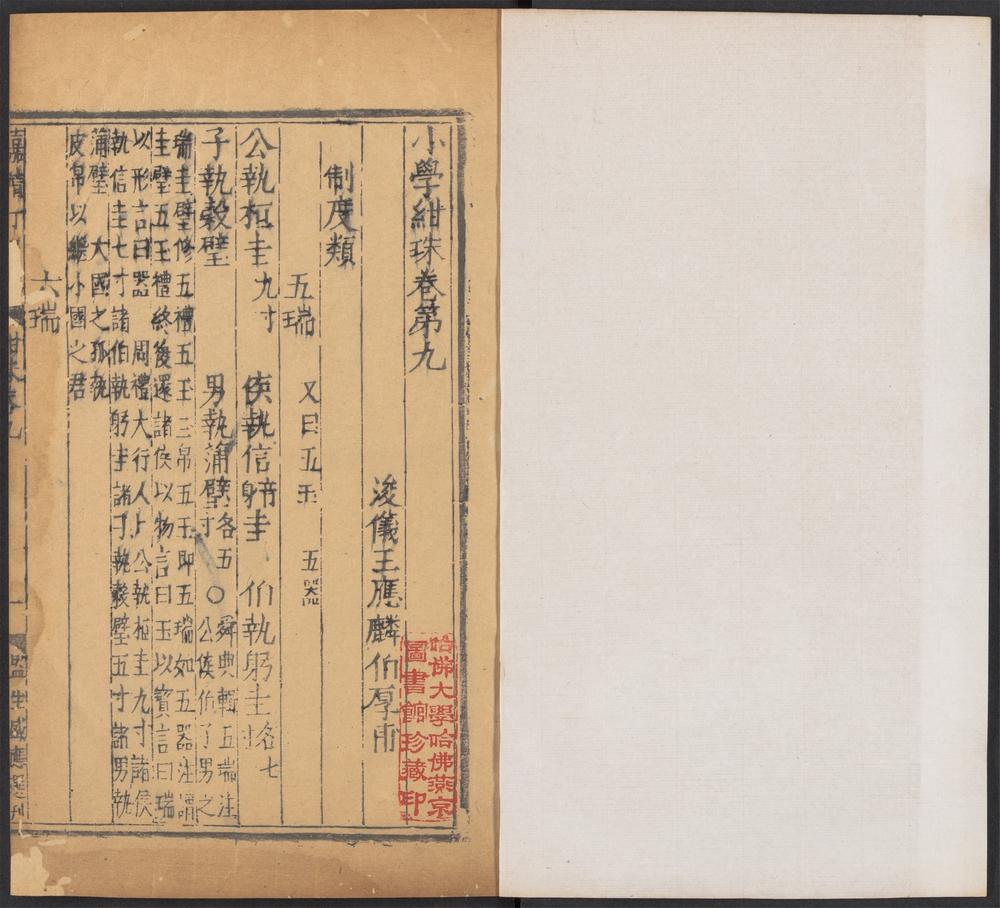 小學紺珠卷第九
浚儀王應麟伯厚甫
制度類
五瑞 又曰五玉 五器
公執桓圭九寸 侯執信圭 伯執躬圭各七寸
子執穀璧 男執蒲璧各五寸〇舜典輯五瑞注公侯伯子男之
瑞圭璧修五禮五玉三帛五玉即五瑞如五器注謂
圭璧五玉禮終後還諸侯以物言曰玉以寶言曰瑞
以形言曰器 周禮大行人上公執桓圭九寸諸侯
執信圭七寸諸伯執躬圭諸子執穀璧五寸諸男執
蒲璧 大國之孤執
皮帛以繼小國之君
六瑞
監生戚應
刊
哈佛大學哈佛燕京
圖書館珍藏印